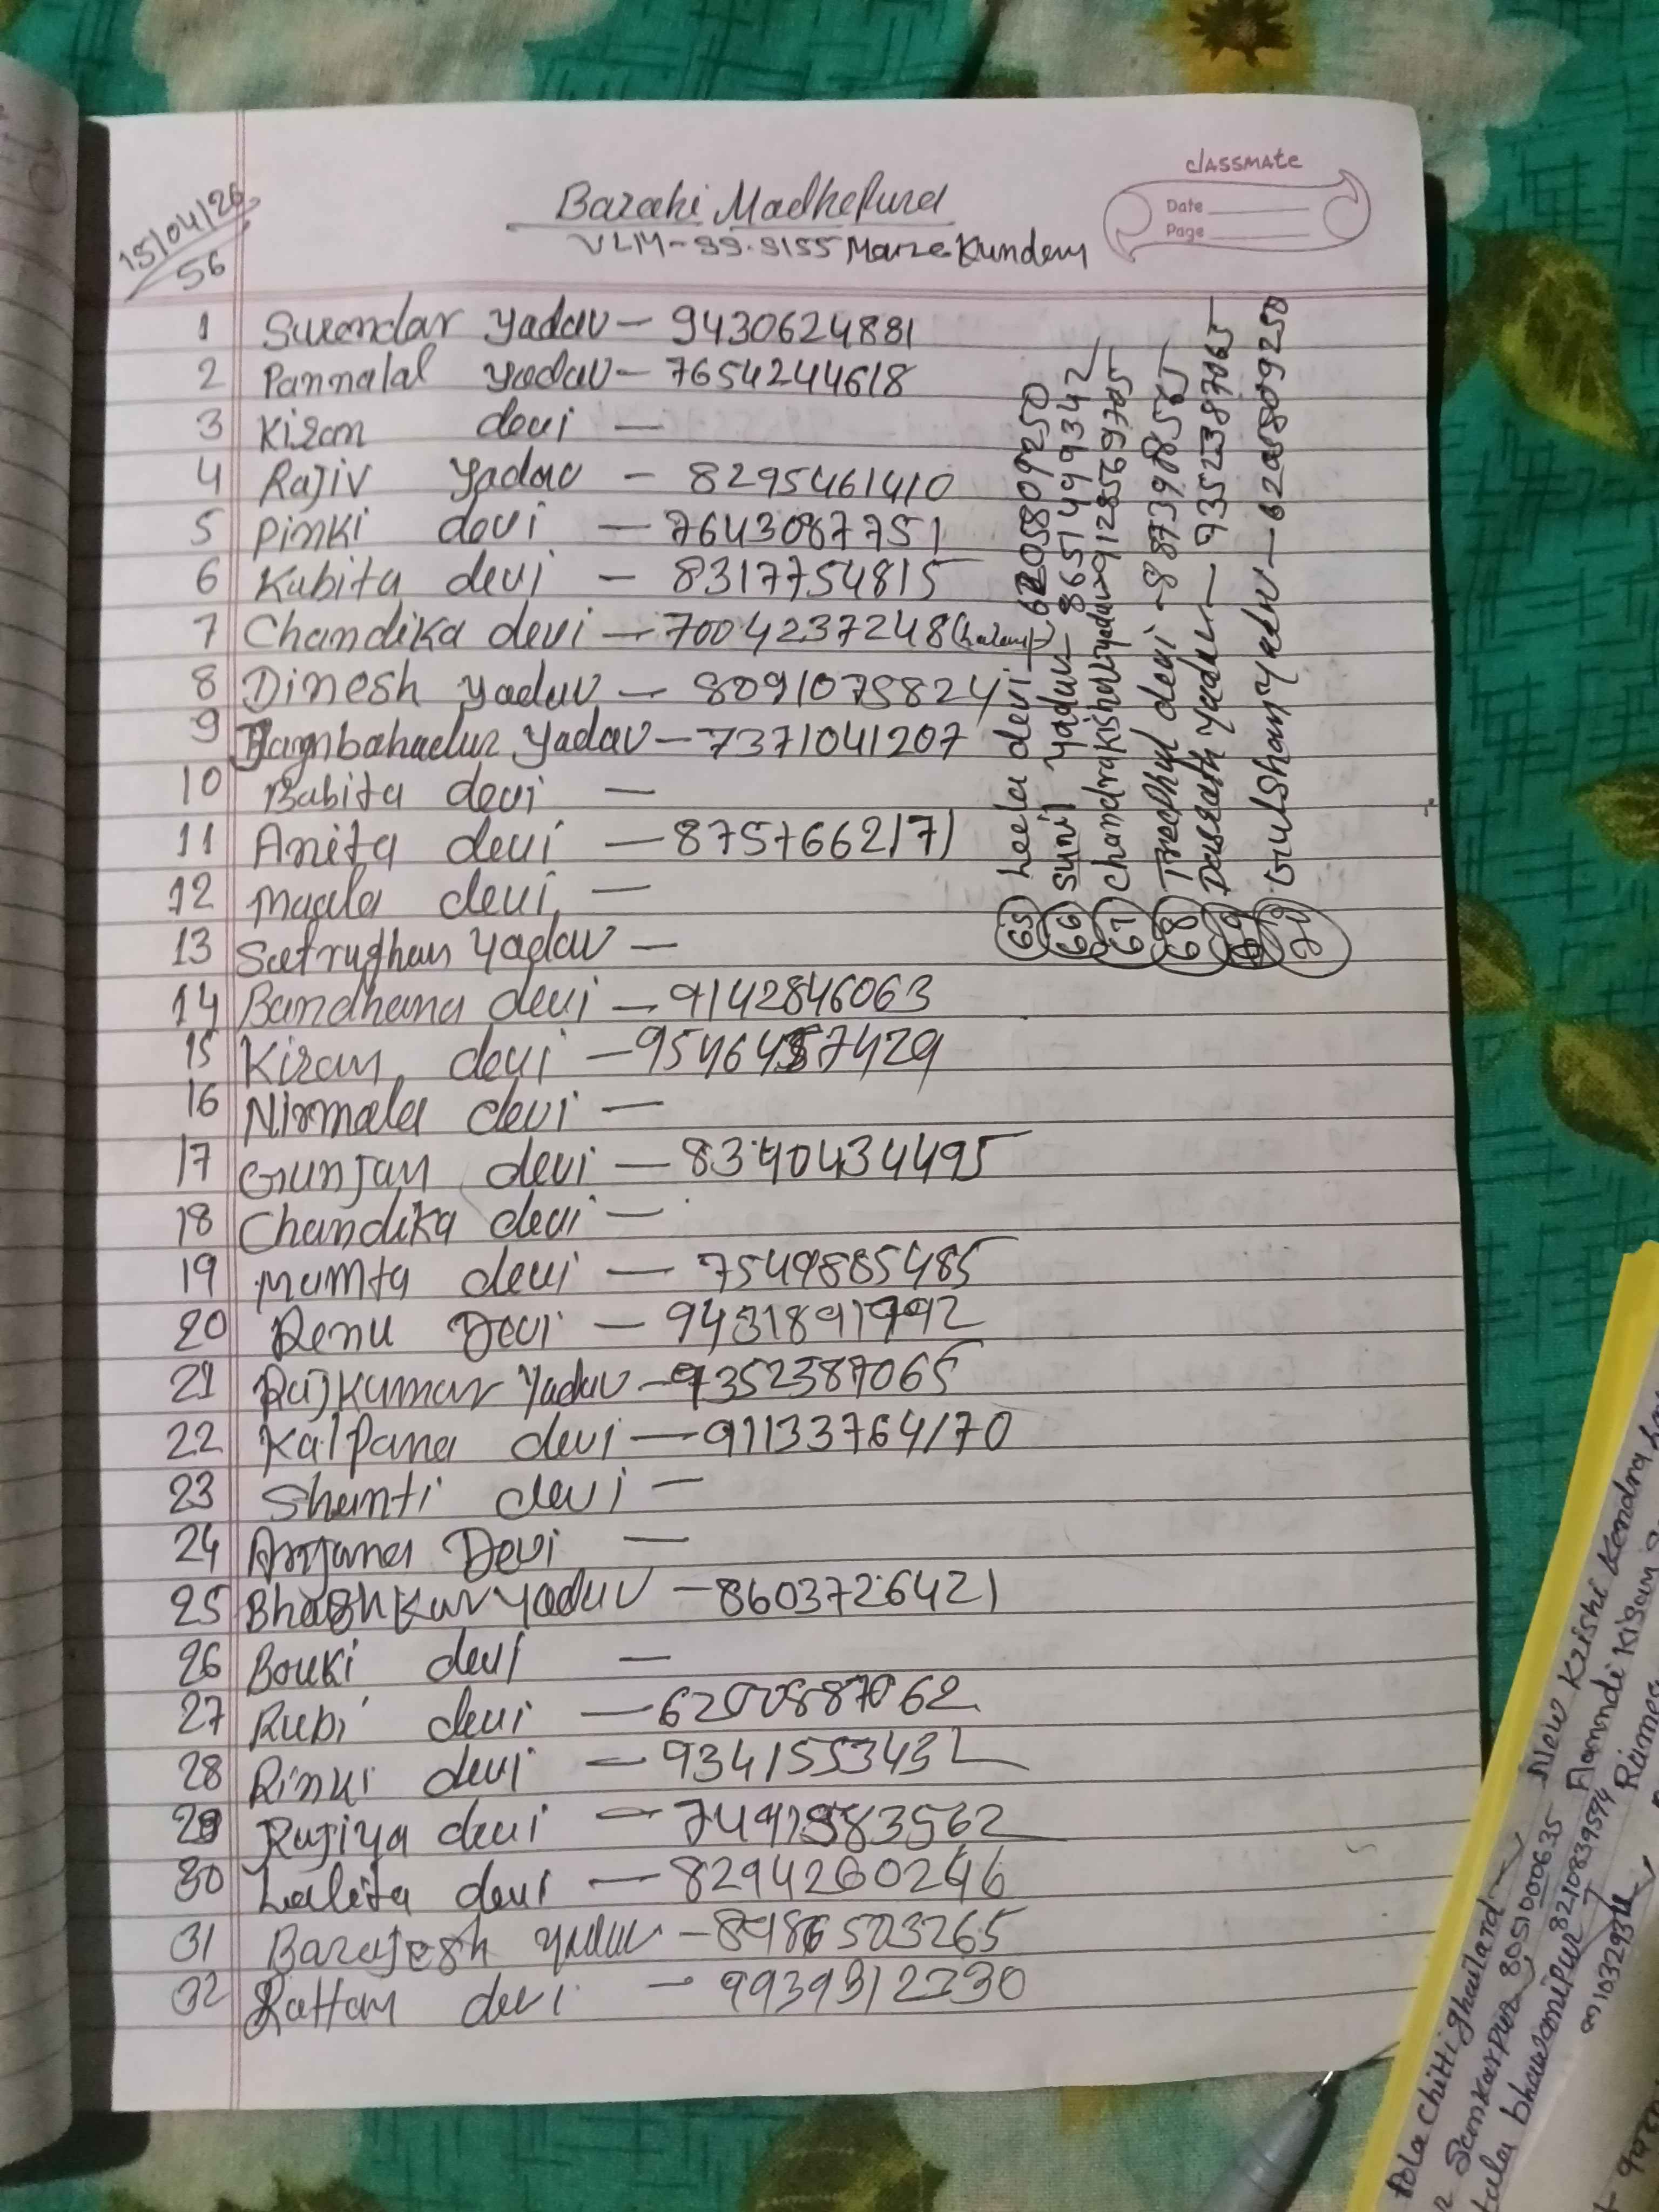 classmate
Date
Page
15/04/26
56
Barahi Madhepura
VLM-99.9155 Marze Kundan
1 Surendar Yadav - 9430624881
2 Pannalal Yadav - 7654244618
3 Kiran devi -
4 Rajiv Yadav - 8295461410
5 Pinki devi - 7643087751
6 Kabita devi - 8317754815
7 Chandika devi - 7004237248
8 Dinesh Yadav - 8091075824
9 Yadav - 7371041207
10 Babita devi -
11 Anita devi - 8757662171
12 Maala devi -
13 Satrughan Yadav -
14 Bandhana devi - 9142846063
15 Kiran devi -
16 Nirmala devi -
17 Gunjan devi - 8340434495
18 Chandika devi -
19 Mamta devi - 7549885485
20 Renu Devi -
21 Rajkumar Yadav - 9352387065
22 Kalpana devi - 91133764170
23 Shanti devi -
24 Anjana Devi -
25 Bhashkar Yadav - 8603726421
26 Bouki devi -
27 Rubi devi -
28 Rinki devi - 9341553432
29 Rajiya devi -
30 Lalita devi - 8294260246
31 Barajesh Yadav -
32 Rattan devi - 9939312330
65 Leela devi - 6205809250
66 Sunil Yadav - 8651499342
67 Chandrakishor Yadav - 9128569705
68 devi - 8873988565
69 Dasrath Yadav - 9352387065
70 Gulshan Yadav -
Pola Chitti ghailard
Sankarpur 8051000635 New Krishi Kendra
bhawanipur 8210839594 Kisan